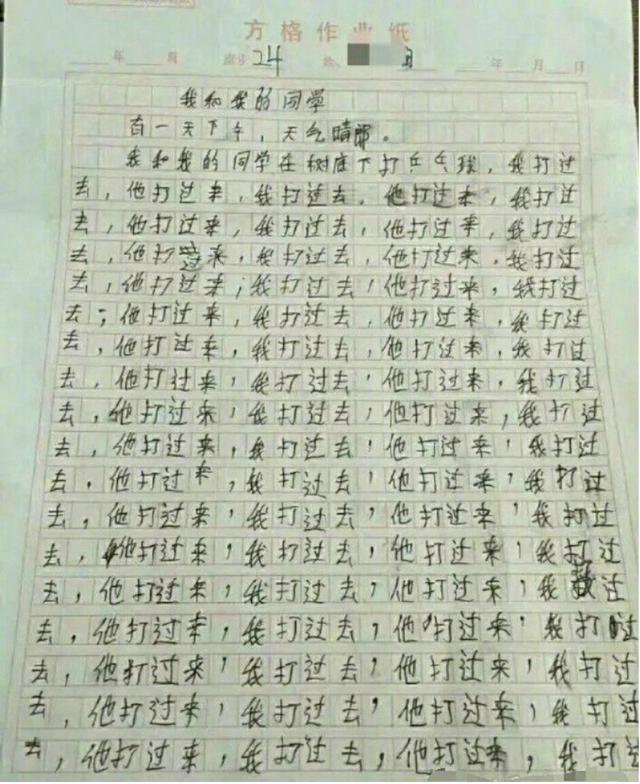 方格作业纸
年 月 座号 24 姓 月 年 月 日
我和我的同学
有一天下午，天气晴朗。
我和我的同学在树底下打乒乓球，我打过
去，他打过来，我打过去，他打过来，我打过
去，他打过来，我打过去，他打过来，我打过
去，他打过来，我打过去，他打过来，我打过
去，他打过来，我打过去，他打过来，我打过
去，他打过来，我打过去，他打过来，我打过
去，他打过来，我打过去，他打过来，我打过
去，他打过来，我打过去，他打过来，我打过
去，他打过来，我打过去，他打过来，我打过
去，他打过来，我打过去，他打过来，我打过
去，他打过来，我打过去，他打过来，我打过
去，他打过来，我打过去，他打过来，我打过
去，他打过来，我打过去，他打过来，我打过
去，他打过来，我打过去，他打过来，我过
去，他打过来，我打过去，他打过来，我打过
去，他打过来，我打过去，他打过来，我打过
去，他打过来，我打过去，他打过来，我打过
去，他打过来，我打过去，他打过来，我打过